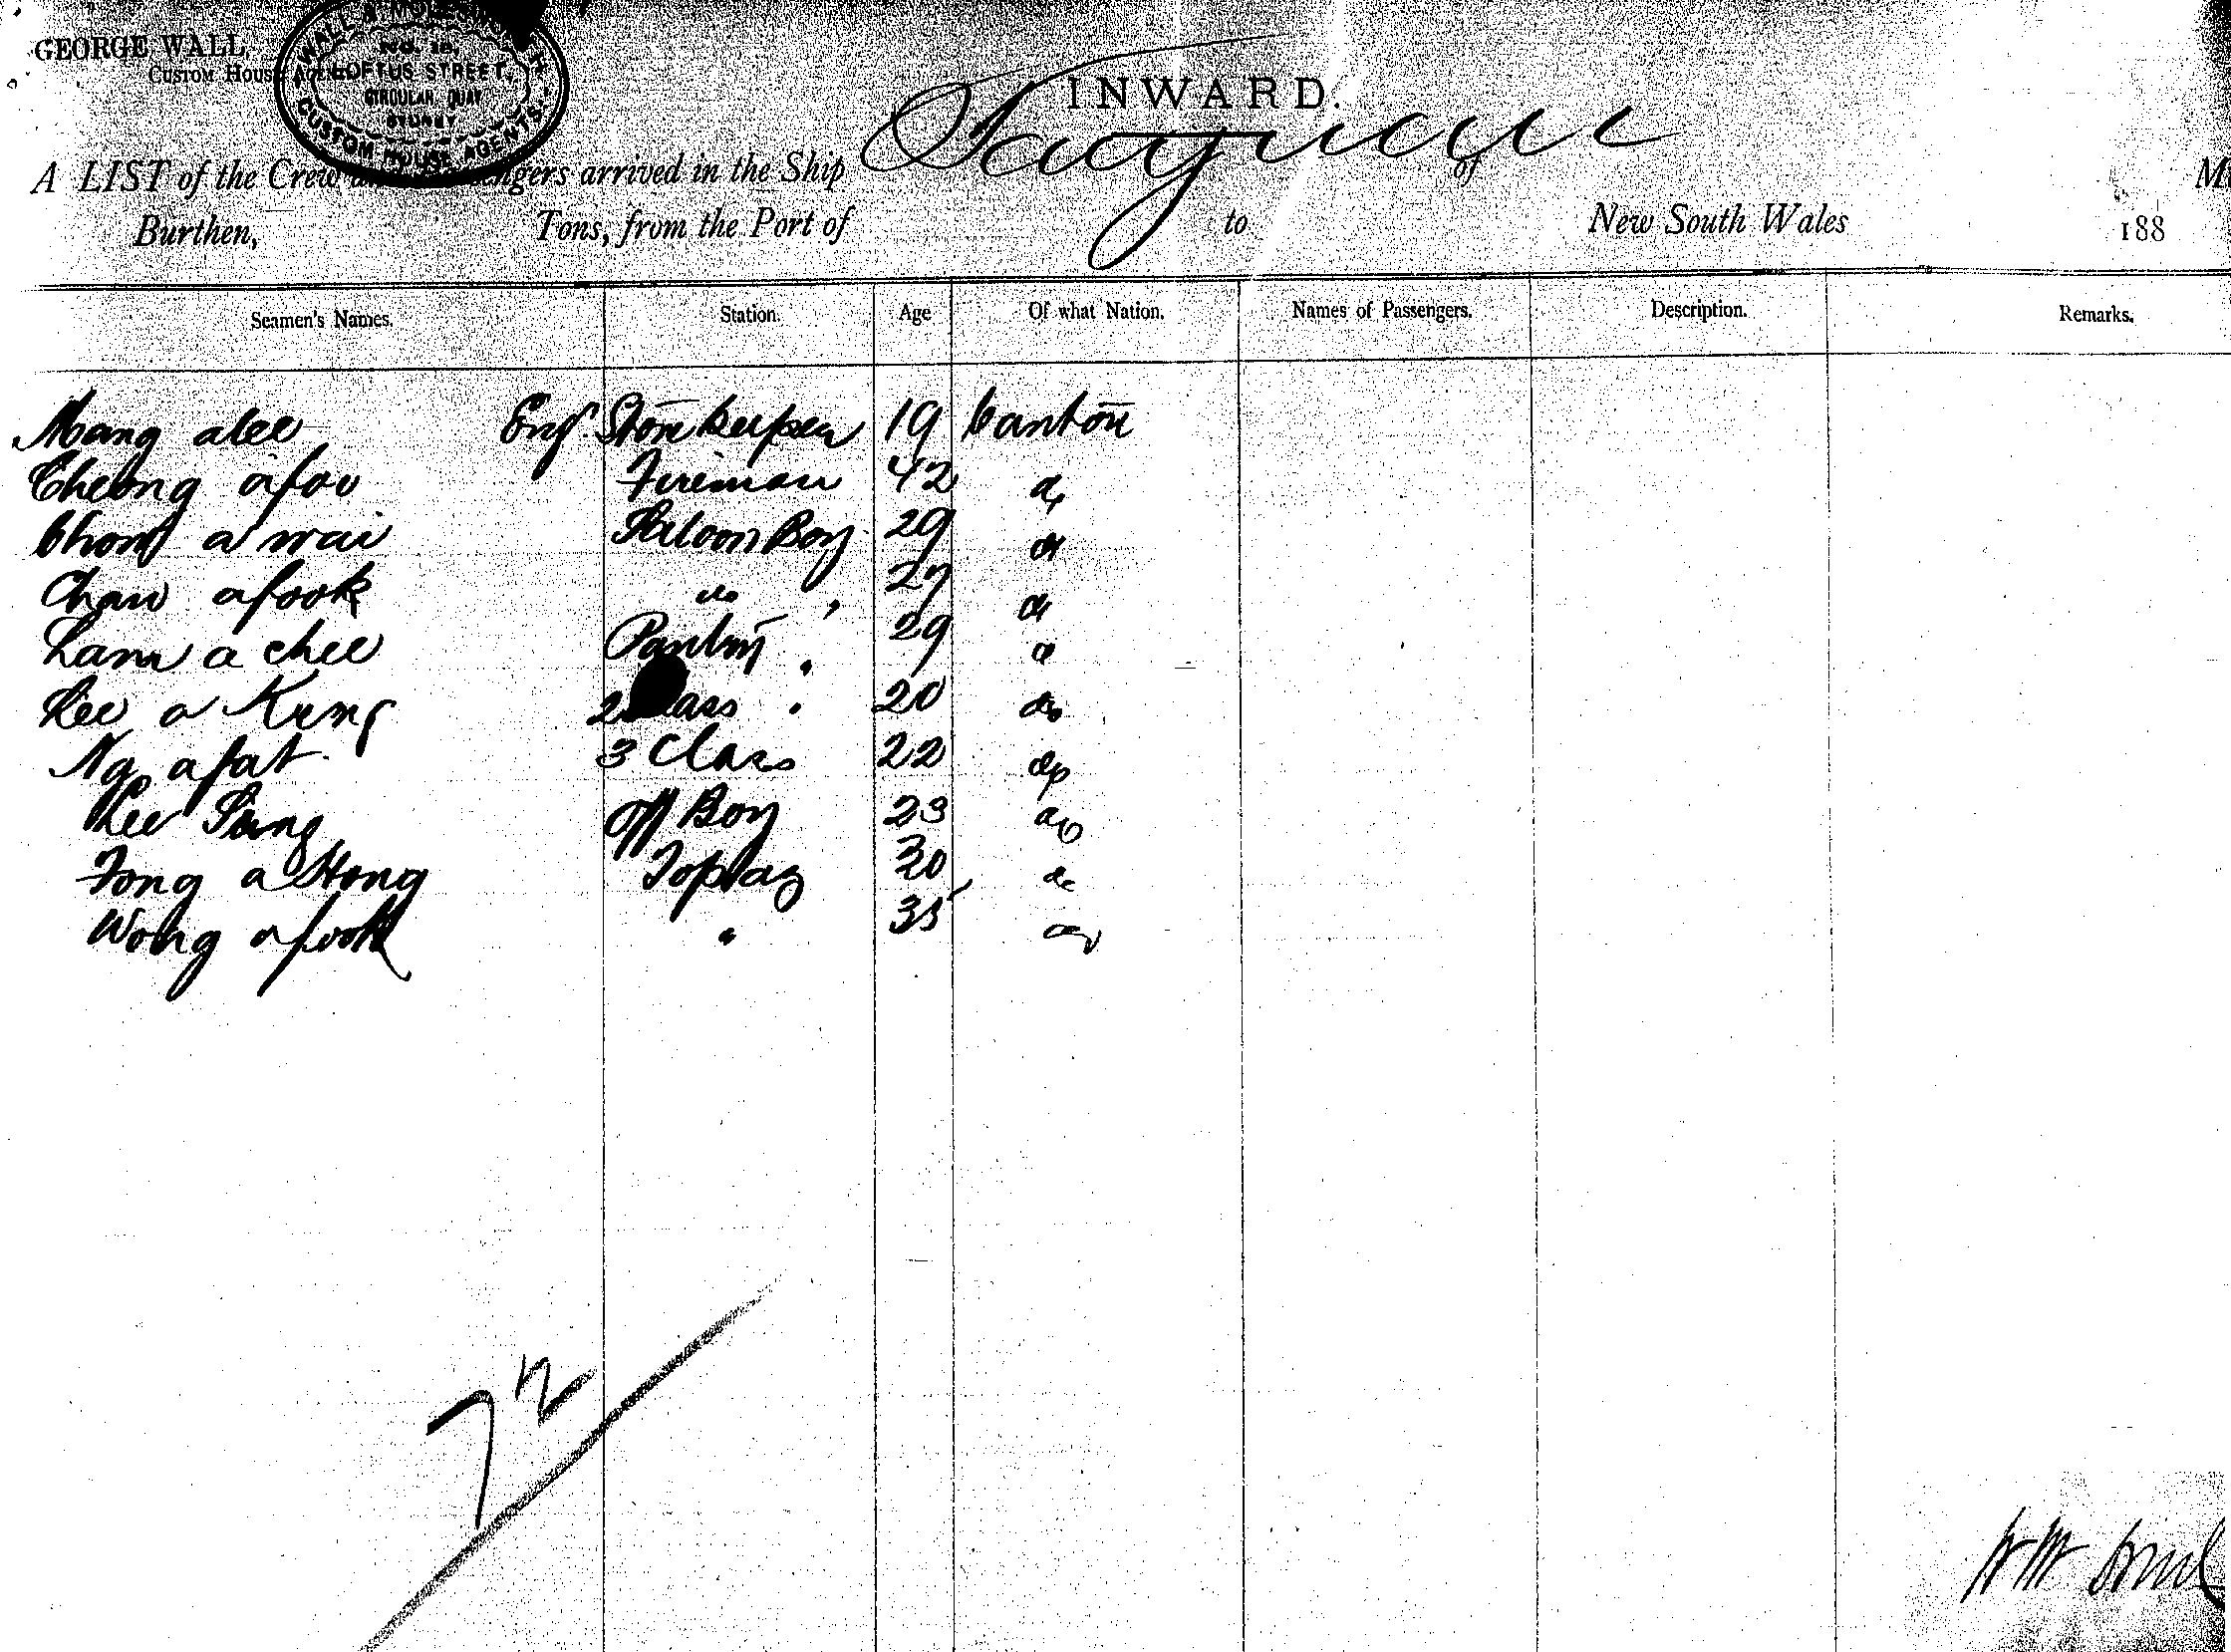 GEORGE WALL,
CUSTOM HOUSE AGENT
WALL &
No. 18,
LOFTUS STREET,
CIRCULAR QUAY
SYDNEY
CUSTOM HOUSE AGENTS.
INWARD.
A LIST of the Crew and Passengers arrived in the Ship Taiyuan of
Burthen, Tons, from the Port of to New South Wales 188
Seamen's Names. Station. Age Of what Nation. Names of Passengers. Description. Remarks.
alee Eng. Storekeeper 19 Canton
Cheong afoo Fireman 42 do
a wai Saloon Boy 29 do
Chaw afook do " 27 do
Lam a chee Pantry " 29 do
Lee a Kung 2 Class " 20 do
Ng afat 3 Class 22 do
Lee Sang off Boy 23 do
Fong a Hong Topaz 30 do
Wong afook " 35 do
72